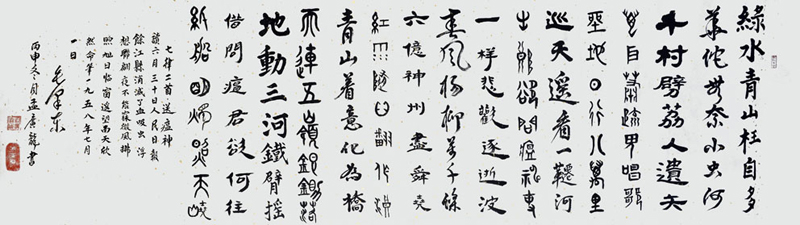 綠水青山枉自多
華佗無奈小虫何
千村薜荔人遺矢
萬户蕭疏鬼唱歌
坐地日行八萬里
巡天遥看一韆河
牛郎欲問瘟神事
一樣悲歡逐逝波
春風楊柳萬千條
六億神州盡舜堯
紅雨隨心翻作浪
青山着意化為橋
天連五嶺銀鋤落
地動三河鐵臂摇
借問瘟君欲何往
紙船明燭照天燒
七律二首送瘟神
讀六月三十日人民日報
餘江縣消滅了血吸虫浮
想聯翩夜不能寐微風拂
煦旭日临窗遥望南天欣
然命筆一九五八年七月
一日
毛澤東
丙申冬月孟龍書